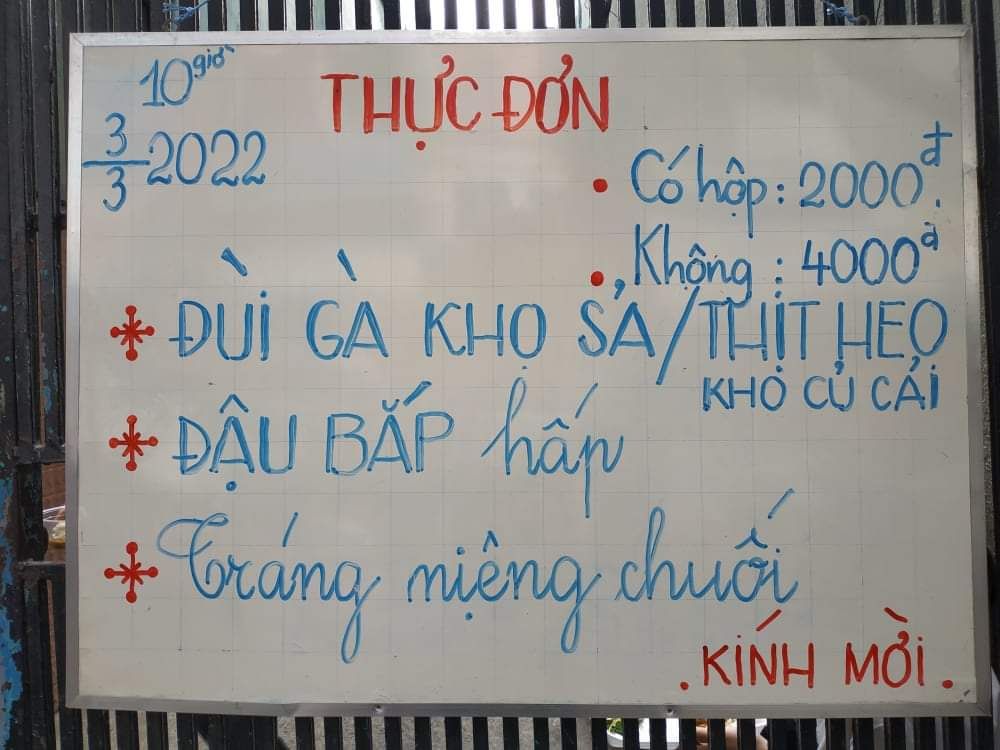 10 giờ
THỰC ĐƠN
3/3 2022
• Có hộp: 2000đ.
• Không: 4000đ
* ĐÙI GÀ KHO SẢ/THỊT HEO
KHO CỦ CẢI
* ĐẬU BẮP hấp
* Tráng miệng chuối
. KÍNH MỜI .